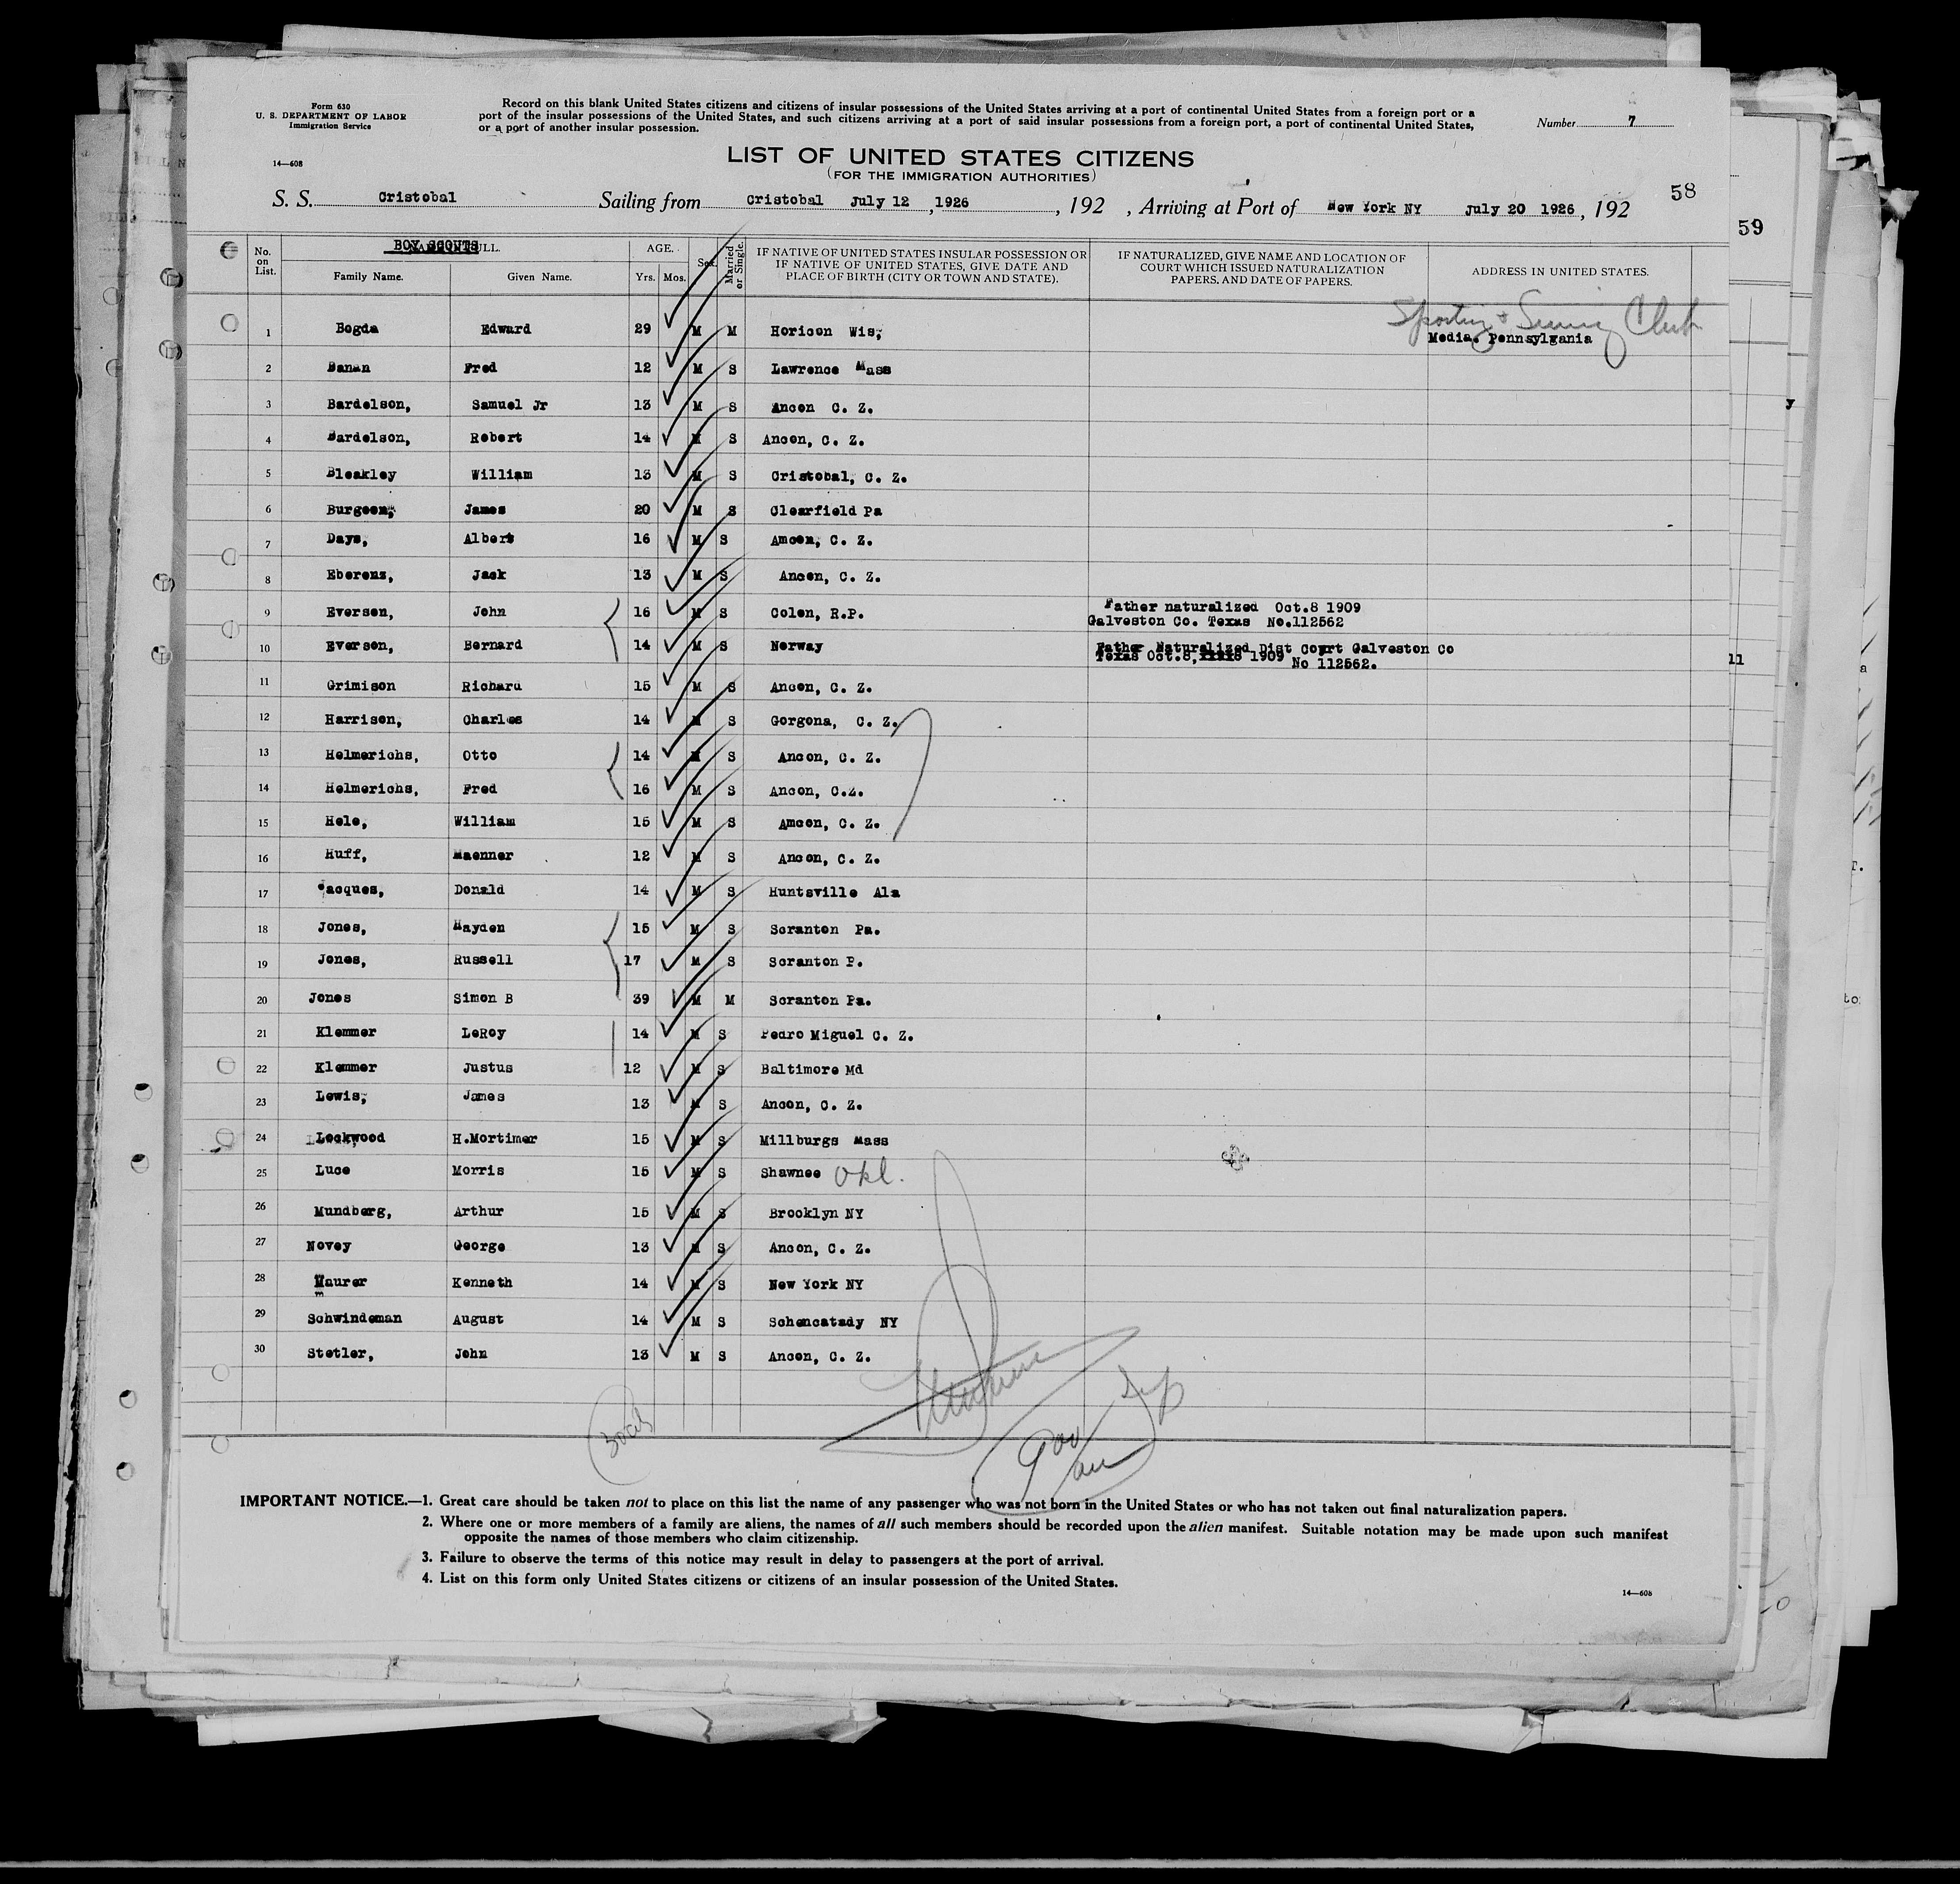 Form 630
U. S. DEPARTMENT OF LABOR
Immigration Service
14—608
Record on this blank United States citizens and citizens of insular possessions of the United States arriving at a port of continental United States from a foreign port or a
port of the insular possessions of the United States, and such citizens arriving at a port of said insular possessions from a foreign port, a port of continental United States,
or a port of another insular possession.
Number 7
LIST OF UNITED STATES CITIZENS
(FOR THE IMMIGRATION AUTHORITIES)
58
59
S. S. Cristobal Sailing from Cristobal July 12, 1926, 192 , Arriving at Port of New York NY July 20 1926, 192
BOY SCOUTS
No. on List.
NAME IN FULL.
Family Name. Given Name.
AGE.
Yrs. Mos.
Sex.
Married or Single.
IF NATIVE OF UNITED STATES INSULAR POSSESSION OR
IF NATIVE OF UNITED STATES, GIVE DATE AND
PLACE OF BIRTH (CITY OR TOWN AND STATE).
IF NATURALIZED, GIVE NAME AND LOCATION OF
COURT WHICH ISSUED NATURALIZATION
PAPERS, AND DATE OF PAPERS.
ADDRESS IN UNITED STATES.
1 Bogda Edward 29 M M Horicon Wis, Club
Media. Pennsylgania
2 Banan Fred 12 M S Lawrence Mass
3 Bardelson, Samuel Jr 13 M S Ancon C. Z.
4 Bardelson, Robert 14 M S Ancon, C. Z.
5 Bleakley William 13 M S Cristobal, C. Z.
6 Burgoon, James 20 M S Clearfield Pa
7 Days, Albert 16 M S Amcon, C. Z.
8 Eberenz, Jack 13 M S Ancon, C. Z.
9 Everson, John 16 M S Colon, R.P. Father naturalized Oct.8 1909
Galveston Co. Texas No.112562
10 Everson, Bernard 14 M S Norway Father Naturalized Dist Court Galveston Co
Texas Oct.8, 1909 No 112562.
11 Grimison Richard 15 M S Ancon, C. Z.
12 Harrison, Charles 14 M S Gorgona, C. Z.
13 Helmerichs, Otto 14 M S Ancon, C. Z.
14 Helmerichs, Fred 16 M S Ancon, C.Z.
15 Hele, William 15 M S Amcon, C. Z.
16 Huff, Maenner 12 M S Ancon, C. Z.
17 Jacques, Donald 14 M S Huntsville Ala
18 Jones, Hayden 15 M S Scranton Pa.
19 Jones, Russell 17 M S Scranton P.
20 Jones Simon B 39 M M Scranton Pa.
21 Klemmer LeRoy 14 M S Pedro Miguel C. Z.
22 Klemmer Justus 12 M S Baltimore Md
23 Lewis, James 13 M S Ancon, C. Z.
24 Lockwood H.Mortimer 15 M S Millburgs Mass
25 Luce Morris 15 M S Shawnee Okl.
26 Mundberg, Arthur 15 M S Brooklyn NY
27 Novey George 13 M S Ancon, C. Z.
28 Maurer Kenneth 14 M S New York NY
29 Schwindeman August 14 M S Schencatady NY
30 Stetler, John 13 M S Ancon, C. Z.
IMPORTANT NOTICE.—1. Great care should be taken not to place on this list the name of any passenger who was not born in the United States or who has not taken out final naturalization papers.
2. Where one or more members of a family are aliens, the names of all such members should be recorded upon the alien manifest. Suitable notation may be made upon such manifest
opposite the names of those members who claim citizenship.
3. Failure to observe the terms of this notice may result in delay to passengers at the port of arrival.
4. List on this form only United States citizens or citizens of an insular possession of the United States.
14—608